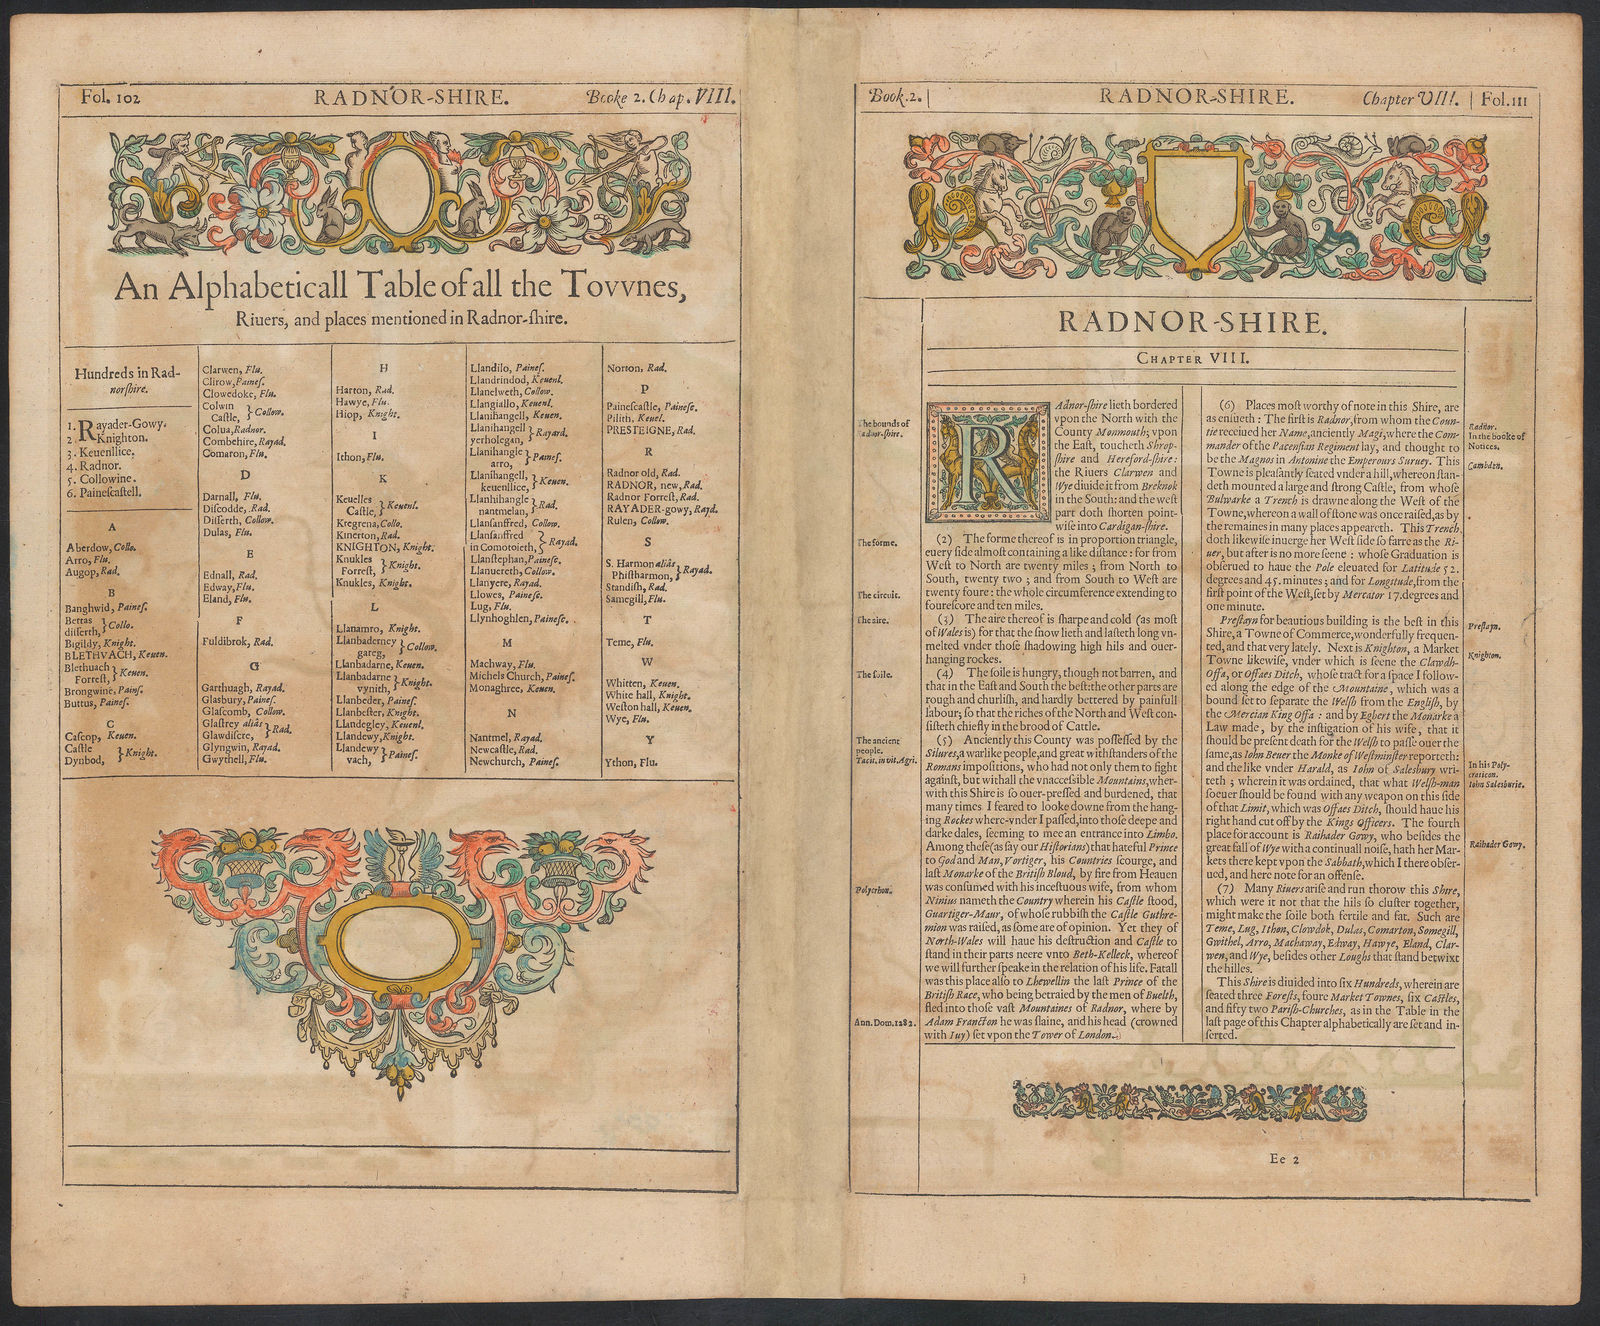 Fol. 102 RADNOR-SHIRE. Booke 2. Chap. VIII.
An Alphabeticall Table of all the Tovvnes,
Riuers, and places mentioned in Radnor-ſhire.
Hundreds in Rad-
norſhire.
1. Rayader-Gowy.
2. Knighton.
3. Keuenllice.
4. Radnor.
5. Collowine.
6. Paineſcaſtell.
A
Aberdow, Collo.
Arro, Flu.
Augop, Rad.
B
Banghwid, Paineſ.
Bettas
diſſerth, } Collo.
Bigildy, Knight.
BLETHVACH, Keuen.
Blethuach
Forreſt, } Keuen.
Brongwine, Painſ.
Buttus, Paineſ.
C
Caſcop, Keuen.
Caſtle
Dynbod, } Knight.
Clarwen, Flu.
Clirow, Paineſ.
Clowedoke, Flu.
Colwin
Caſtle, } Collow.
Colua, Radnor.
Combehire, Rayad.
Comaron, Flu.
D
Darnall, Flu.
Diſcodde, Rad.
Diſſerth, Collow.
Dulas, Flu.
E
Ednall, Rad.
Edway, Flu.
Eland, Flu.
F
Fuldibrok, Rad.
G
Garthuagh, Rayad.
Glasbury, Paineſ.
Glaſcomb, Collow.
Glaſtrey aliàs
Glawdiſcre, } Rad.
Glyngwin, Rayad.
Gwythell, Flu.
H
Harton, Rad.
Hawye, Flu.
Hiop, Knight.
I
Ithon, Flu.
K
Keuelles
Caſtle, } Keuenl.
Kregrena, Collo.
Kinerton, Rad.
KNIGHTON, Knight.
Knukles
Forreſt, } Knight.
Knukles, Knight.
L
Llanamro, Knight.
Llanbaderney
gareg, } Collow.
Llanbadarne, Keuen.
Llanbadarne
vynith, } Knight.
Llanbeder, Paineſ.
Llanbeſter, Knight.
Llandegley, Keuenl.
Llandewy, Knight.
Llandewy
vach, } Paineſ.
Llandilo, Paineſ.
Llandrindod, Keuenl.
Llanelweth, Collow.
Llangiallo, Keuenl.
Llanihangell, Keuen.
Llanihangell
yerholegan, } Rayard.
Llanihangle
arro, } Paineſ.
Llanihangell
keuenllice, } Keuen.
Llanhihangle
nantmelan, } Rad.
Llanſanffred, Collow.
Llanſanffred
in Comotoieth, } Rayad.
Llanſtephan, Paineſe.
Llanuereth, Collow.
Llanyere, Rayad.
Llowes, Paineſe.
Lug, Flu.
Llynhoghlen, Paineſe.
M
Machway, Flu.
Michels Church, Paineſ.
Monaghree, Keuen.
N
Nantmel, Rayad.
Newcaſtle, Rad.
Newchurch, Paineſ.
Norton, Rad.
P
Paineſcaſtle, Paineſe.
Pilith, Keuel.
PRESTEIGNE, Rad.
R
Radnor old, Rad.
RADNOR, new, Rad.
Radnor Forreſt, Rad.
RAYADER-gowy, Rayd.
Rulen, Collow.
S
S. Harmon aliàs
Phiſtharmon, } Rayad.
Standiſh, Rad.
Samegill, Flu.
T
Teme, Flu.
W
Whitten, Keuen.
White hall, Knight.
Weſton hall, Keuen.
Wye, Flu.
Y
Ython, Flu.
Book. 2. RADNOR-SHIRE. Chapter VIII. Fol. 111
RADNOR-SHIRE.
CHAPTER VIII.
The bounds of
Radnor-ſhire.
RAdnor-ſhire lieth bordered
vpon the North with the
County Monmouth; vpon
the Eaſt, toucheth Shrop-
ſhire and Hereford-ſhire:
the Riuers Clarwen and
Wye diuide it from Breknok
in the South: and the weſt
part doth ſhorten point-
wiſe into Cardigan-ſhire.
The forme.
(2) The forme thereof is in proportion triangle,
euery ſide almoſt containing a like diſtance: for from
Weſt to North are twenty miles; from North to
South, twenty two; and from South to Weſt are
The circuit.
twenty foure: the whole circumference extending to
foureſcore and ten miles.
The aire.
(3) The aire thereof is ſharpe and cold (as moſt
of Wales is) for that the ſnow lieth and laſteth long vn-
melted vnder thoſe ſhadowing high hils and ouer-
hanging rockes.
The ſoile.
(4) The ſoile is hungry, though not barren, and
that in the Eaſt and South the beſt: the other parts are
rough and churliſh, and hardly bettered by painfull
labour; ſo that the riches of the North and Weſt con-
ſiſteth chiefly in the brood of Cattle.
The ancient
people.
Tacit. in vit. Agri.
(5) Anciently this County was poſſeſſed by the
Silures, a warlike people, and great withſtanders of the
Romans impoſitions, who had not only them to fight
againſt, but withall the vnacceſſible Mountains, wher-
with this Shire is ſo ouer-preſſed and burdened, that
many times I feared to looke downe from the hang-
ing Rockes where-vnder I paſſed, into thoſe deepe and
darke dales, ſeeming to mee an entrance into Limbo.
Among theſe (as ſay our Hiſtorians) that hateful Prince
to God and Man, Vortiger, his Countries ſcourge, and
laſt Monarke of the Britiſh Bloud, by fire from Heauen
Polycrhon.
was conſumed with his inceſtuous wife, from whom
Ninius nameth the Country wherein his Caſtle ſtood,
Guartiger-Maur, of whoſe rubbiſh the Caſtle Guthre-
mion was raiſed, as ſome are of opinion. Yet they of
North-Wales will haue his deſtruction and Caſtle to
ſtand in their parts neere vnto Beth-Kelleck, whereof
we will further ſpeake in the relation of his life. Fatall
was this place alſo to Lhewellin the laſt Prince of the
Britiſh Race, who being betraied by the men of Buelth,
fled into thoſe vaſt Mountaines of Radnor, where by
Ann. Dom. 1282.
Adam Francton he was ſlaine, and his head (crowned
with Iuy) ſet vpon the Tower of London.
(6) Places moſt worthy of note in this Shire, are
as enſueth: The firſt is Radnor, from whom the Coun-
tie receiued her Name, anciently Magi, where the Com-
mander of the Pacenſian Regiment lay, and thought to
be the Magnos in Antonine the Emperours Suruey. This
Towne is pleaſantly ſeated vnder a hill, whereon ſtan-
deth mounted a large and ſtrong Caſtle, from whoſe
Bulwarke a Trench is drawne along the Weſt of the
Towne, whereon a wall of ſtone was once raiſed, as by
the remaines in many places appeareth. This Trench
doth likewiſe inuerge her Weſt ſide ſo farre as the Ri-
uer, but after is no more ſeene: whoſe Graduation is
obſerued to haue the Pole eleuated for Latitude 52.
degrees and 45. minutes; and for Longitude, from the
firſt point of the Weſt, ſet by Mercator 17. degrees and
one minute.
Radnor.
In the booke of
Notices.
Cambden.
Preſtayn for beautious building is the beſt in this
Shire, a Towne of Commerce, wonderfully frequen-
ted, and that very lately. Next is Knighton, a Market
Towne likewiſe, vnder which is ſeene the Clawdh-
Offa, or Offaes Ditch, whoſe tract for a ſpace I follow-
ed along the edge of the Mountaine, which was a
bound ſet to ſeparate the Welſh from the Engliſh, by
the Mercian King Offa: and by Egbert the Monarke a
Law made, by the inſtigation of his wife, that it
ſhould be preſent death for the Welſh to paſſe ouer the
ſame, as Iohn Beuer the Monke of Weſtminſter reporteth:
and the like vnder Harald, as Iohn of Salesbury wri-
teth; wherein it was ordained, that what Welſh-man
ſoeuer ſhould be found with any weapon on this ſide
of that Limit, which was Offaes Ditch, ſhould haue his
right hand cut off by the Kings Officers. The fourth
place for account is Raihader Gowy, who beſides the
great fall of Wye with a continuall noiſe, hath her Mar-
kets there kept vpon the Sabbath, which I there obſer-
ued, and here note for an offenſe.
Preſtayn.
Knighton.
In his Poly-
craticon.
Iohn Salesburie.
Raihader Gowy.
(7) Many Riuers ariſe and run thorow this Shire,
which were it not that the hils ſo cluſter together,
might make the ſoile both fertile and fat. Such are
Teme, Lug, Ithon, Clowdok, Dulas, Comarton, Somegill,
Gwithel, Arro, Machaway, Edway, Hawye, Eland, Clar-
wen, and Wye, beſides other Loughs that ſtand betwixt
the hilles.
This Shire is diuided into ſix Hundreds, wherein are
ſeated three Foreſts, foure Market Townes, ſix Caſtles,
and fifty two Pariſh-Churches, as in the Table in the
laſt page of this Chapter alphabetically are ſet and in-
ſerted.
Ee 2